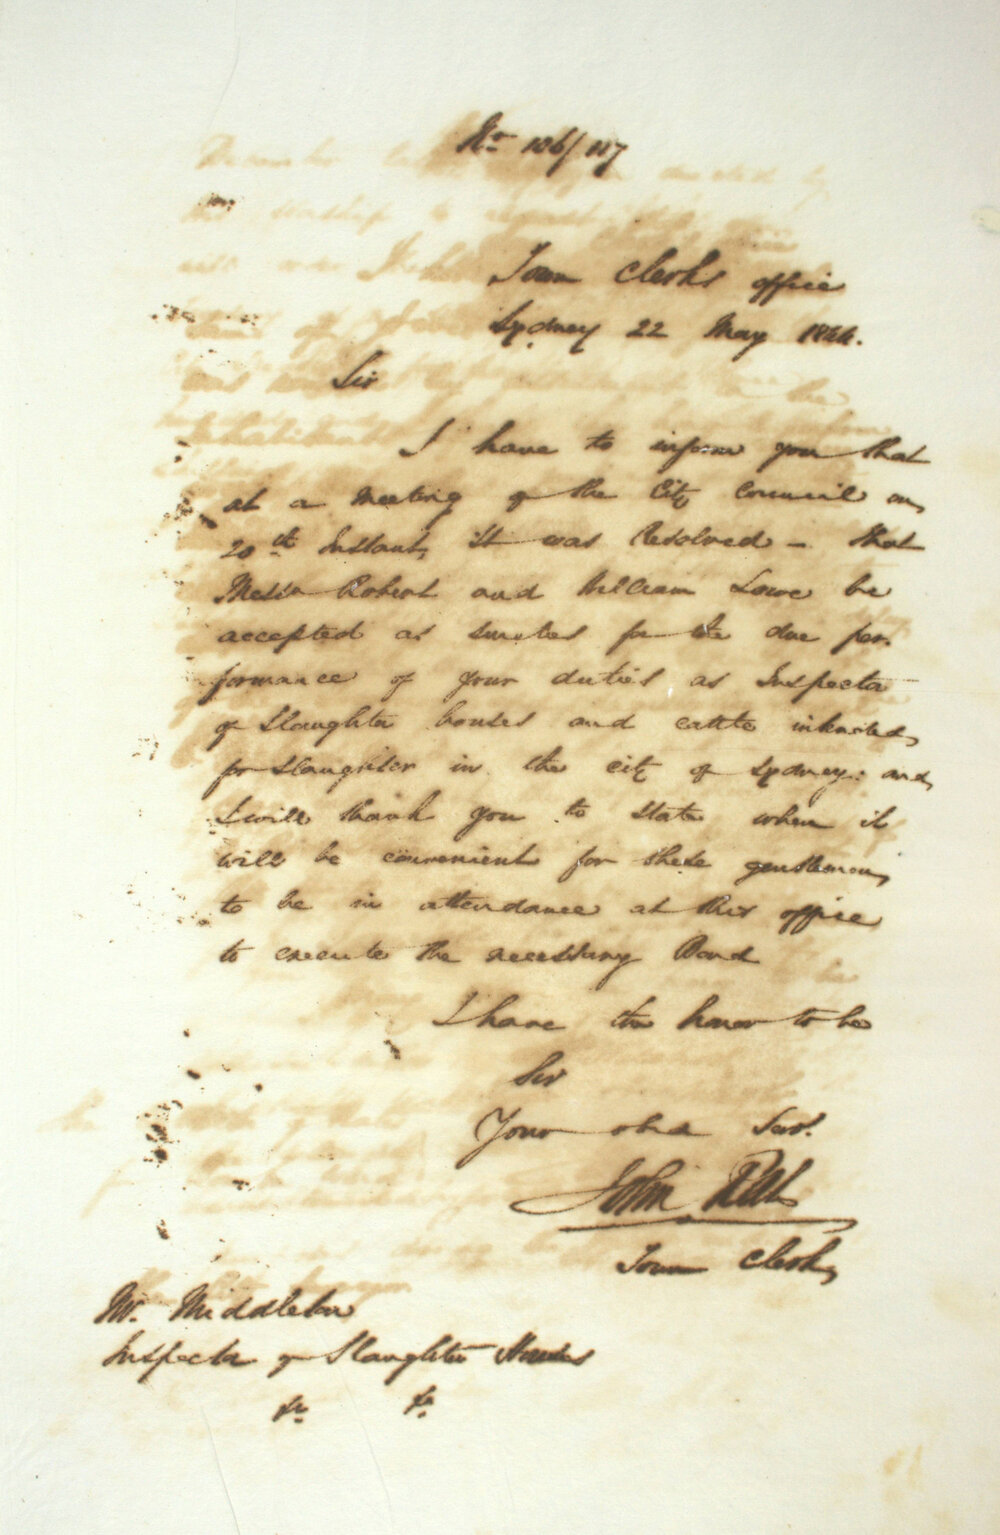 No. 106/117
Town Clerks office
Sydney 22 May 1844.
Sir
I have to inform you that
at a Meeting of the City Council on
20th Instant, it was Resolved – that
Messrs Robert and William Lowe be
accepted as sureties for the due per-
formance of your duties as Inspector
of Slaughter houses and cattle intended
for Slaughter in the city of Sydney: and
I will thank you to state when it
will be convenient for these gentlemen
to be in attendance at this office
to execute the necessary Bond
I have the honor to be
Sir
Your obed Servt.
John
Town Clerk
Mr. Middleton
Inspector of Slaughter Houses
&c. &c.